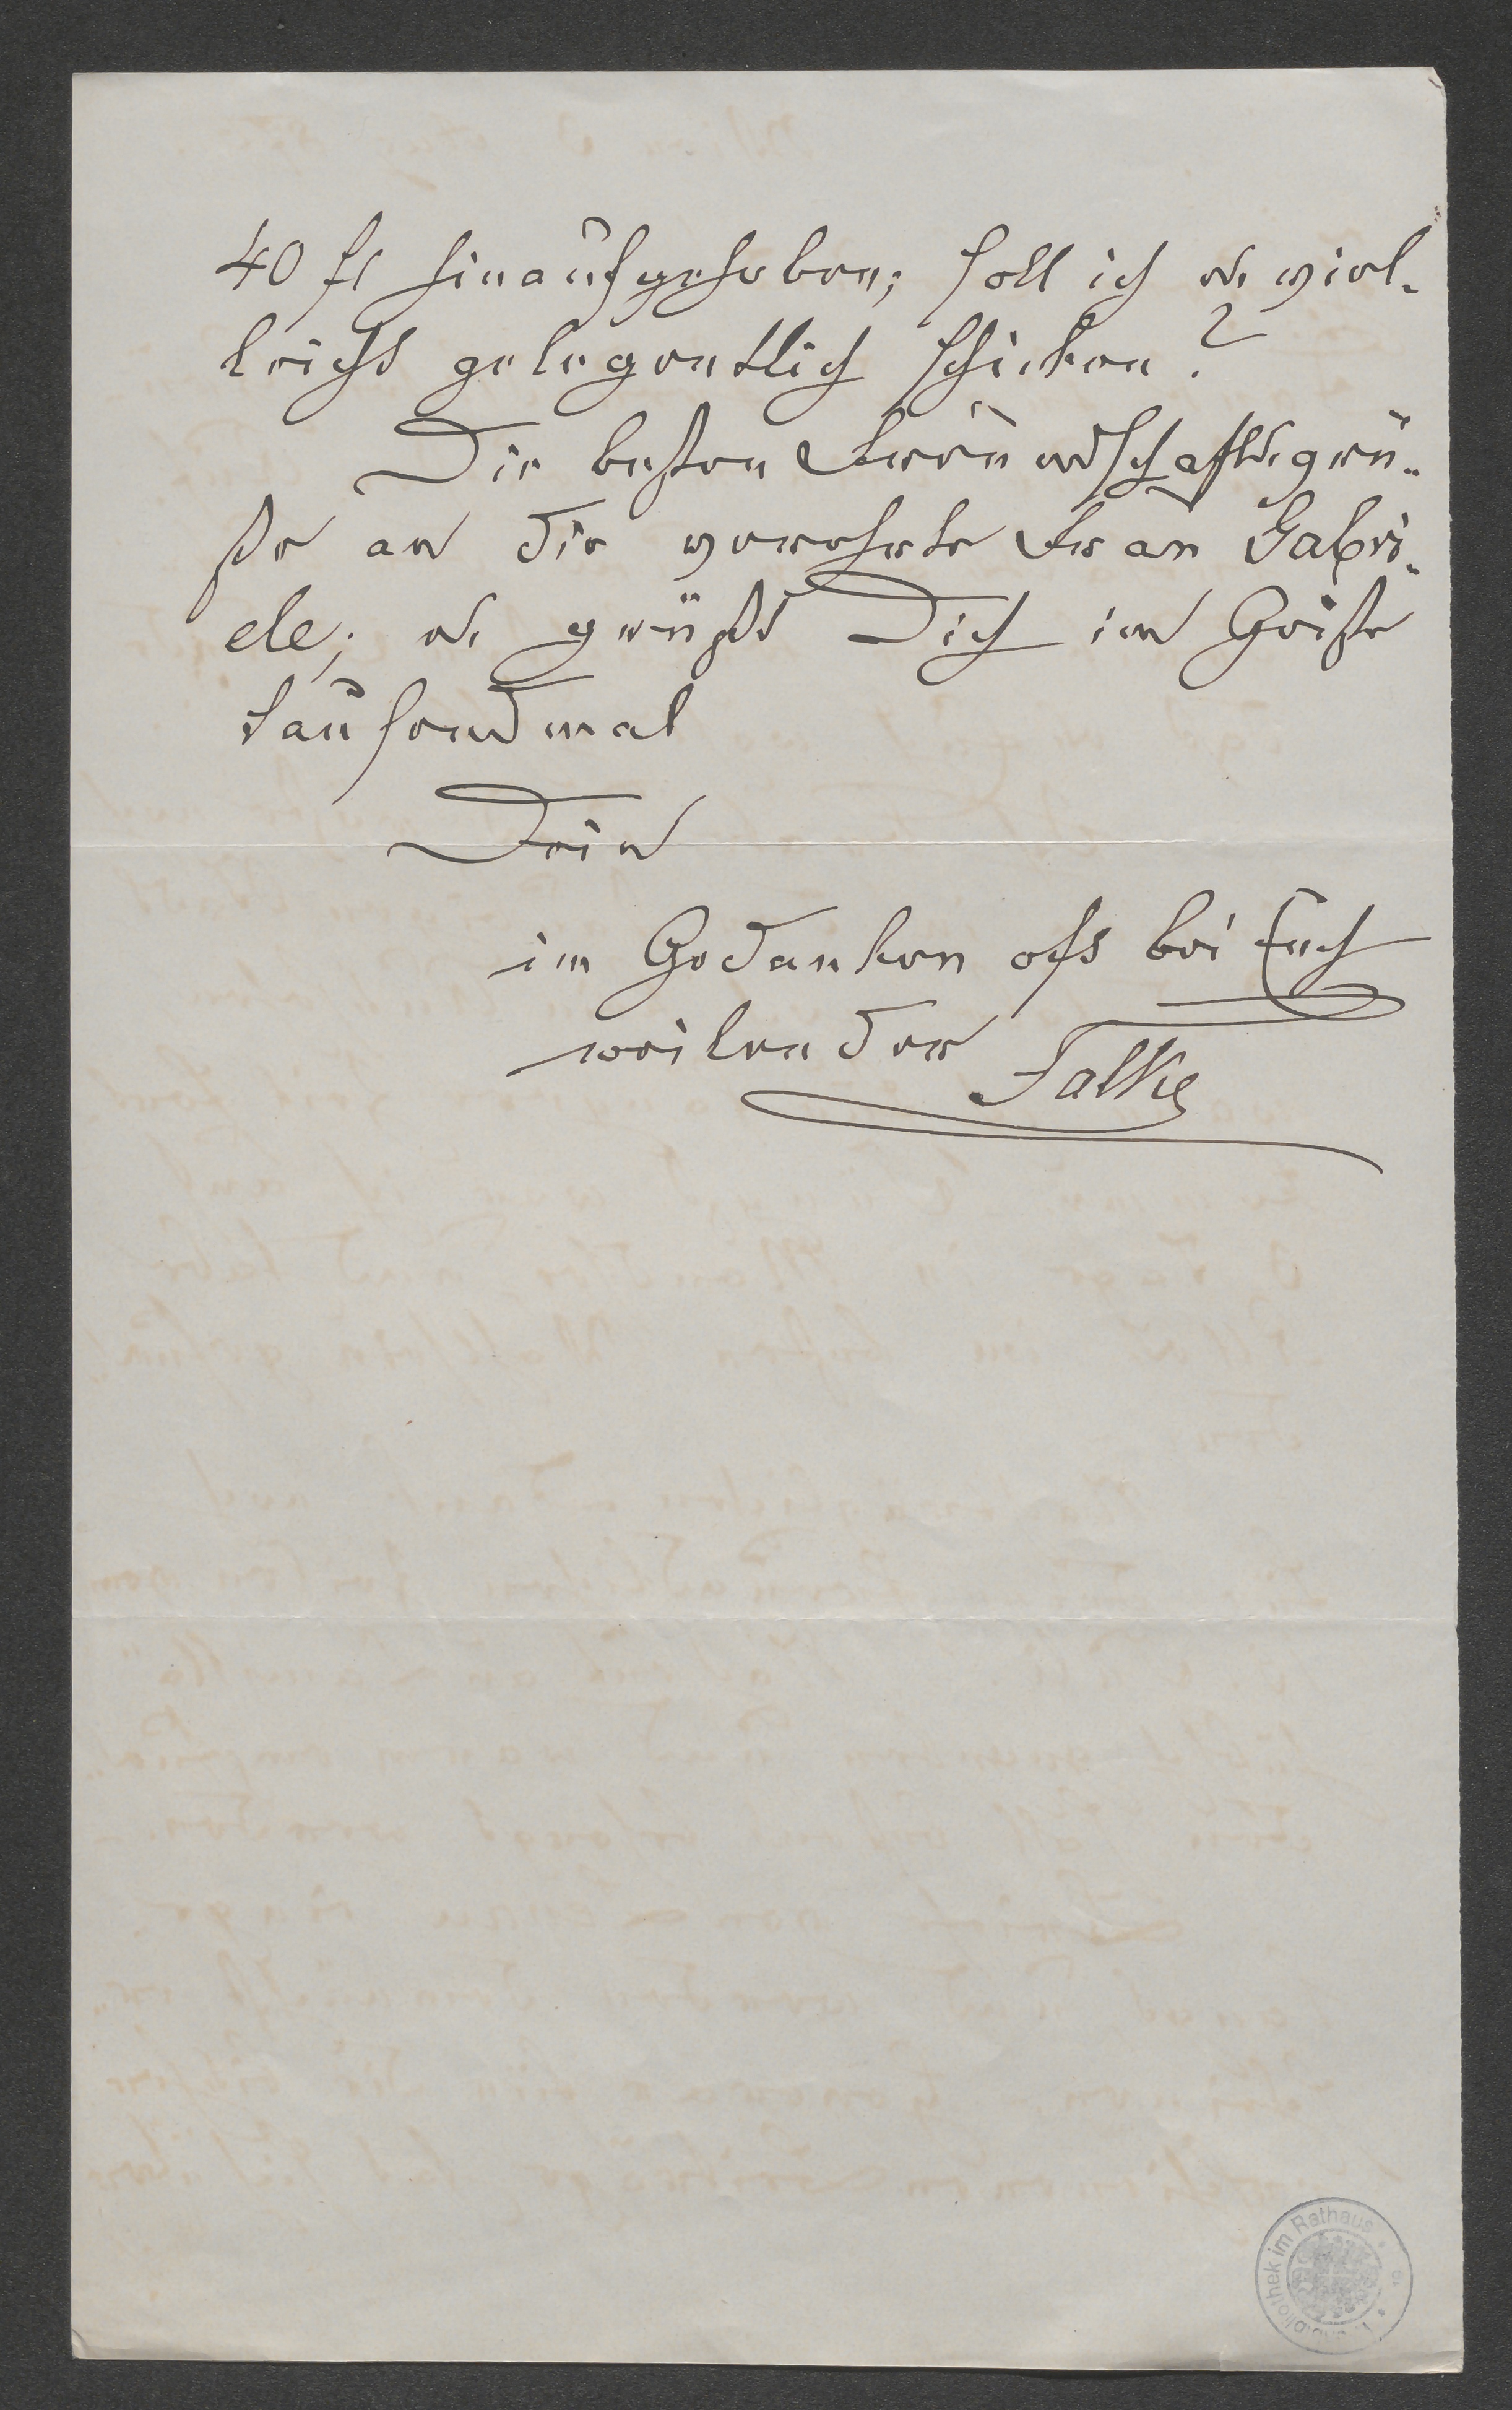 40 fl hinaufgehoben; soll ich es viel-
leicht gelegentlich schicken?
Die besten Freundschaftsgrü-
ße an die verehrte Frau Gabri-
ele; es grüßt Dich im Geiste
tausendmal
Dein
im Gedanken oft bei Euch
weilender Falke
Bibliothek im Rathaus